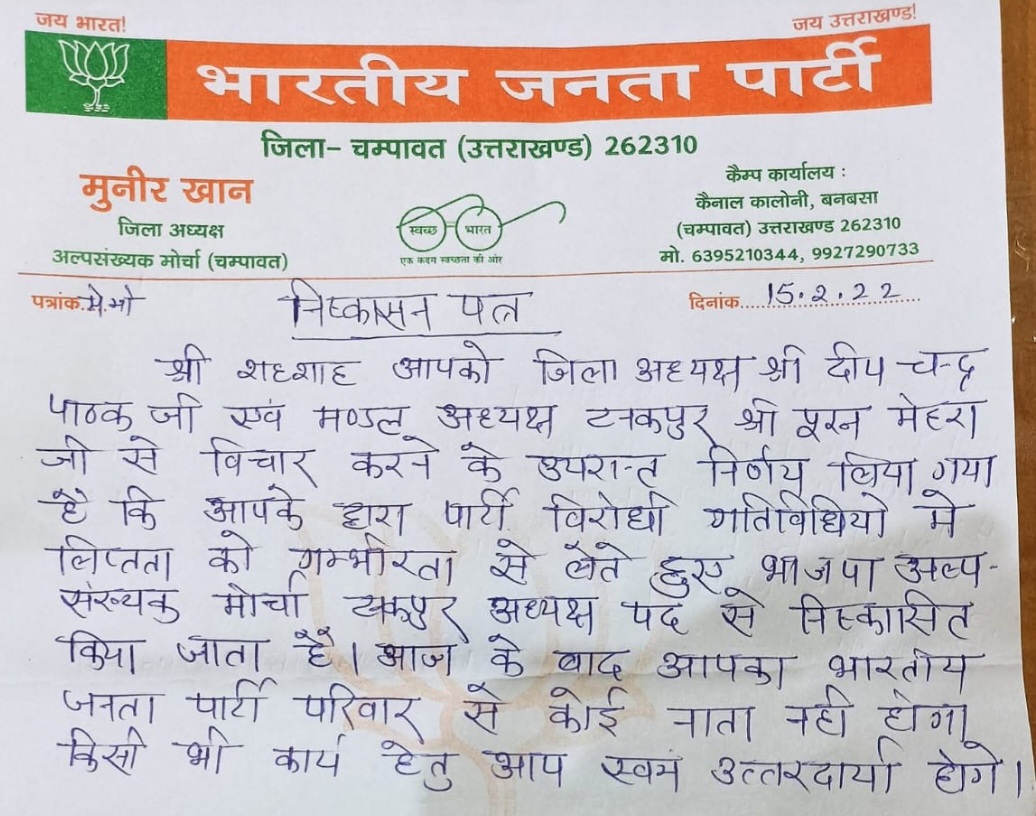 जय भारत!
जय उत्तराखण्ड!
भारतीय जनता पार्टी
जिला- चम्पावत (उत्तराखण्ड) 262310
मुनीर खान
जिला अध्यक्ष
अल्पसंख्यक मोर्चा (चम्पावत)
स्वच्छ भारत
एक कदम स्वच्छता की ओर
कैम्प कार्यालय :
कैनाल कालोनी, बनबसा
(चम्पावत) उत्तराखण्ड 262310
मो. 6395210344, 9927290733
पत्रांक.मे.मो
दिनांक...15.2.22
निष्कासन पत्र
श्री शहशाह आपको जिला अध्यक्ष श्री दीप चन्द्र
पाठक जी एवं मण्डल अध्यक्ष टनकपुर श्री पूरन मेहरा
जी से विचार करने के उपरान्त निर्णय लिया गया
है कि आपके द्वारा पार्टी विरोधी गतिविधियो मे
लिप्तता को गम्भीरता से लेते हुए भाजपा अल्प-
संख्यक मोर्चा टनकपुर अध्यक्ष पद से निष्कासित
किया जाता है। आज के बाद आपका भारतीय
जनता पार्टी परिवार से कोई नाता नही होगा
किसी भी कार्य हेतु आप स्वमं उत्तरदायी होगे।